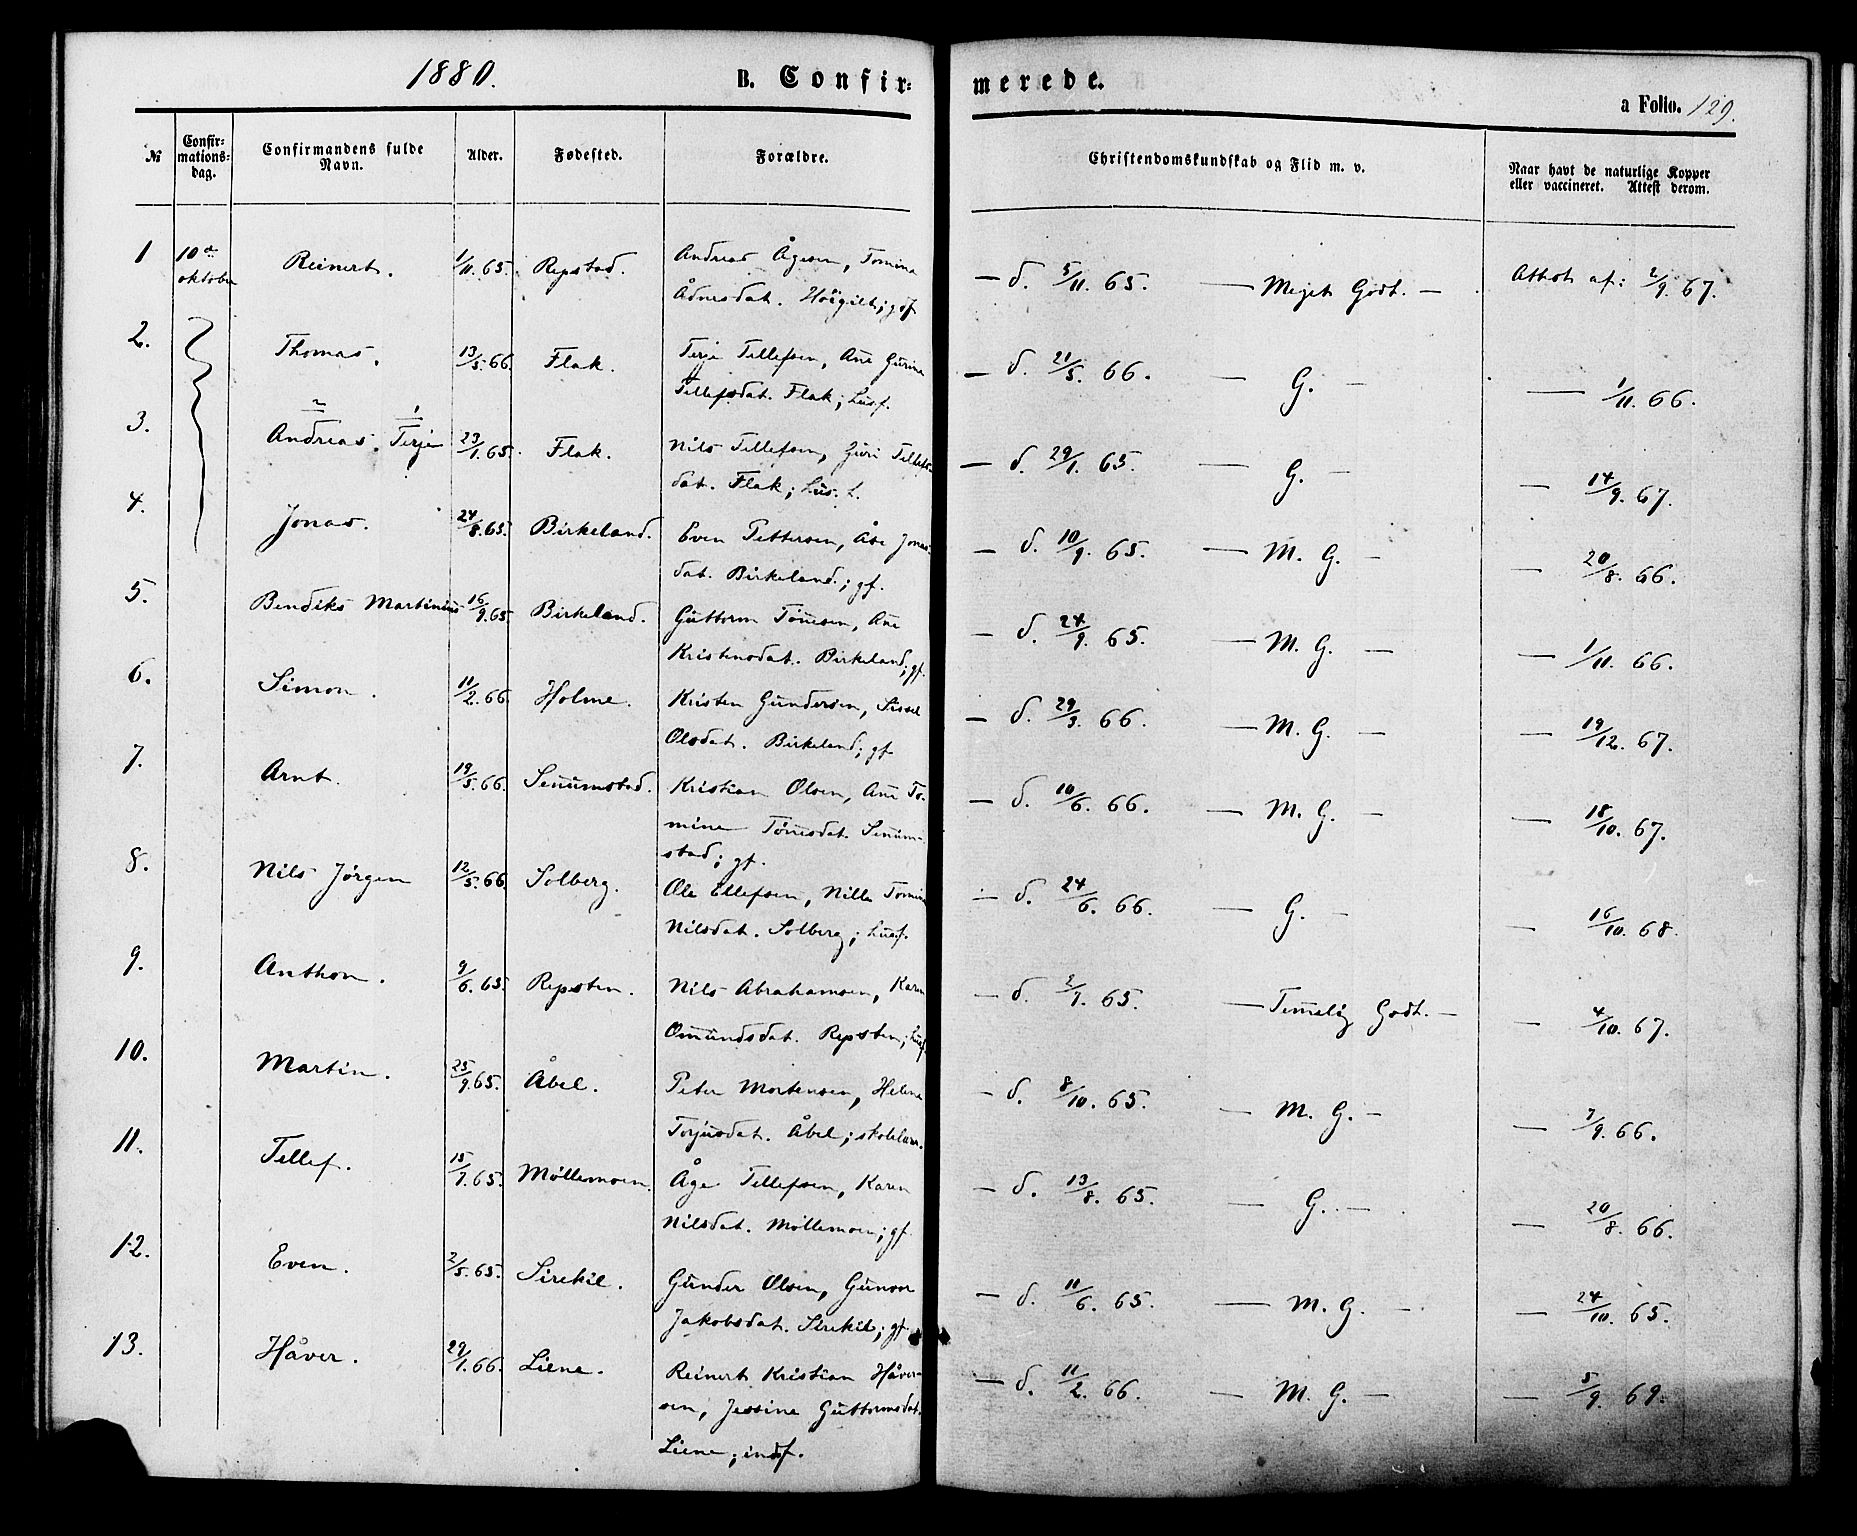 1880.
B. Confir=
merede.
a Folio. 129.
№
Confir-
mations-
dag.
Confirmandens fulde
Navn.
Alder.
Fødested.
Forældre.
Christendomskundskab og Flid m. v.
Naar havt de naturlige Kopper
eller vaccineret. Attest derom.
1 10de Reinert. 1/11.65. Repstad. Andreas Ågesen, Tomine — d. 5/11. 65. — Meget Godt. — Attest af: 2/9. 67.
oktober Ådnesdat. gf
2. Thomas. 13/5.66. Flak. Terje Tellefsen, Ane Gurine — d. 21/5. 66. — G. — — 1/11. 66.
Tellefsdat. Flak; Husf.
2 1
3. Andreas. Terje 23/1.65. Flak. Nils Tellefsen, Guri Tellefs- — d. 29/1. 65. — G. — — 14/9. 67.
dat. Flak; Hus. L.
4. Jonas. 24/8.65. Birkeland. Even Pettersen, Åse Jonas- — d. 10/9. 65. — M. G. — — 20/8. 66.
dat. Birkeland; gf.
5. Bendiks Martinius 16/9.65. Birkeland. Guttorm Tönnesen, Ane — d. 24/9. 65. — M. G. — — 1/11. 66.
Kristensdat. Birkeland; gf.
6. Simon. 11/2.66. Holme. Kristen Gundersen, Sissel — d. 29/3. 66. — M. G. — — 19/12. 67.
Olsdat. Birkeland; gf
7. Arnt. 19/5.66. Senumstad. Kristian Olsen, Ane To- — d. 10/6. 66. — M. G. — — 18/10. 67.
mine Tönnesdat. Senum-
stad; gf.
8. Nils Jörgen 12/5.66. Solberg. Ole Ellefsen, Nille Tomine — d. 24/6. 66. — G. — — 16/10. 68.
Nilsdat. Solberg; Husf.
9. Anthon. 9/6.65. Repsten. Nils Abrahamsen, Karen — d. 2/7. 65. — Temmelig Godt. — — 4/10. 67.
Omundsdat. Repsten; Husf.
10. Martin. 25/9.65. Åbel. Peter Mortensen, Helene — d. 8/10. 65. — M. G. — — 7/9. 66.
Torjusdat. Åbel; skolelær.
11. Tellef. 15/7.65. Möllemoen. Åge Tellefsen, Karen — d. 13/8. 65. — G. — — 20/8. 66.
Nilsdat. Möllemoen; gf.
12. Even. 2/5.65. Sirekil. Gunder Olsen, Gunvor — d. 11/6. 65. — M. G. — — 24/10. 65.
Jakobsdat. Sirekil; gf.
13. Håver. 29/1.66. Liene. Reinert Kristian Håver- — d. 11/2. 66. — M. G. — — 5/9. 69.
sen, Jessine Guttormsdat.
Liene; indf.